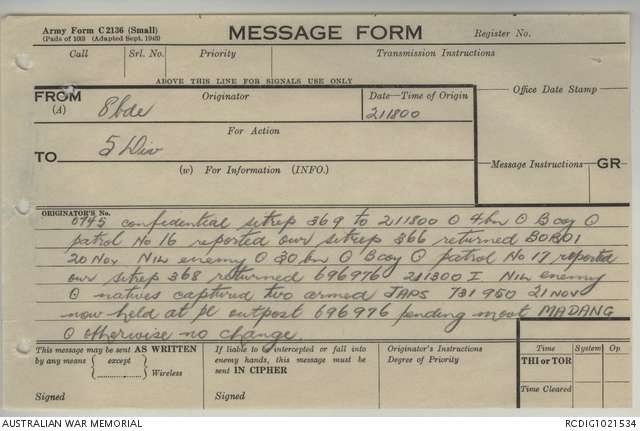 Army Form C 2136 (Small)
(Pads of 100) (Adapted Sept. 1943)
MESSAGE FORM
Register No.
Call Srl. No. Priority Transmission Instructions
ABOVE THIS LINE FOR SIGNALS USE ONLY
FROM
(A)
Originator
8 bde
Date—Time of Origin
211800
Office Date Stamp
For Action
TO
5 Div
(w) For Information (INFO.)
Message Instructions GR
ORIGINATOR'S No.
0745 confidential sitrep 369 to 211800 O 4 bn O B coy O
patrol No 16 reported our sitrep 366 returned BOROI
20 Nov Nil enemy O 30 bn O B coy O patrol No 17 reported
our sitrep 368 returned 696976 211300 I Nil enemy
O natives captured two armed JAPS 731950 21 Nov
now held at pl outpost 696976 pending mov't MADANG
O otherwise no change.
This message may be sent AS WRITTEN
by any means (except)
Wireless
Signed
If liable to be intercepted or fall into
enemy hands, this message must be
sent IN CIPHER
Signed
Originator's Instructions
Degree of Priority
Time System Op
THI or TOR
Time Cleared
AUSTRALIAN WAR MEMORIAL
RCDIG1021534